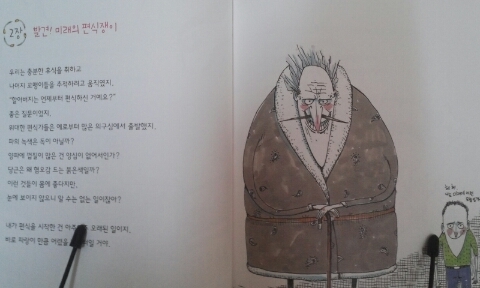 2장 발견! 미래의 편식쟁이
우리는 충분한 휴식을 취하고
나머지 꼬랭이들을 추적하려고 움직였지.
"할아버지는 언제부터 편식하신 거예요?"
좋은 질문이었지.
위대한 편식가들은 예로부터 많은 의구심에서 출발했지.
파의 녹색은 독이 아닐까?
양파에 껍질이 많은 건 양심이 없어서인가?
당근은 왜 혈호감 드는 붉은색일까?
이런 것들이 몸에 좋다지만,
눈에 보이지 않으니 알 수는 없는 일이잖아?
내가 편식을 시작한 건 아주 오래된 일이지.
바로 자랑이 만큼 어렸을 때일 거야.